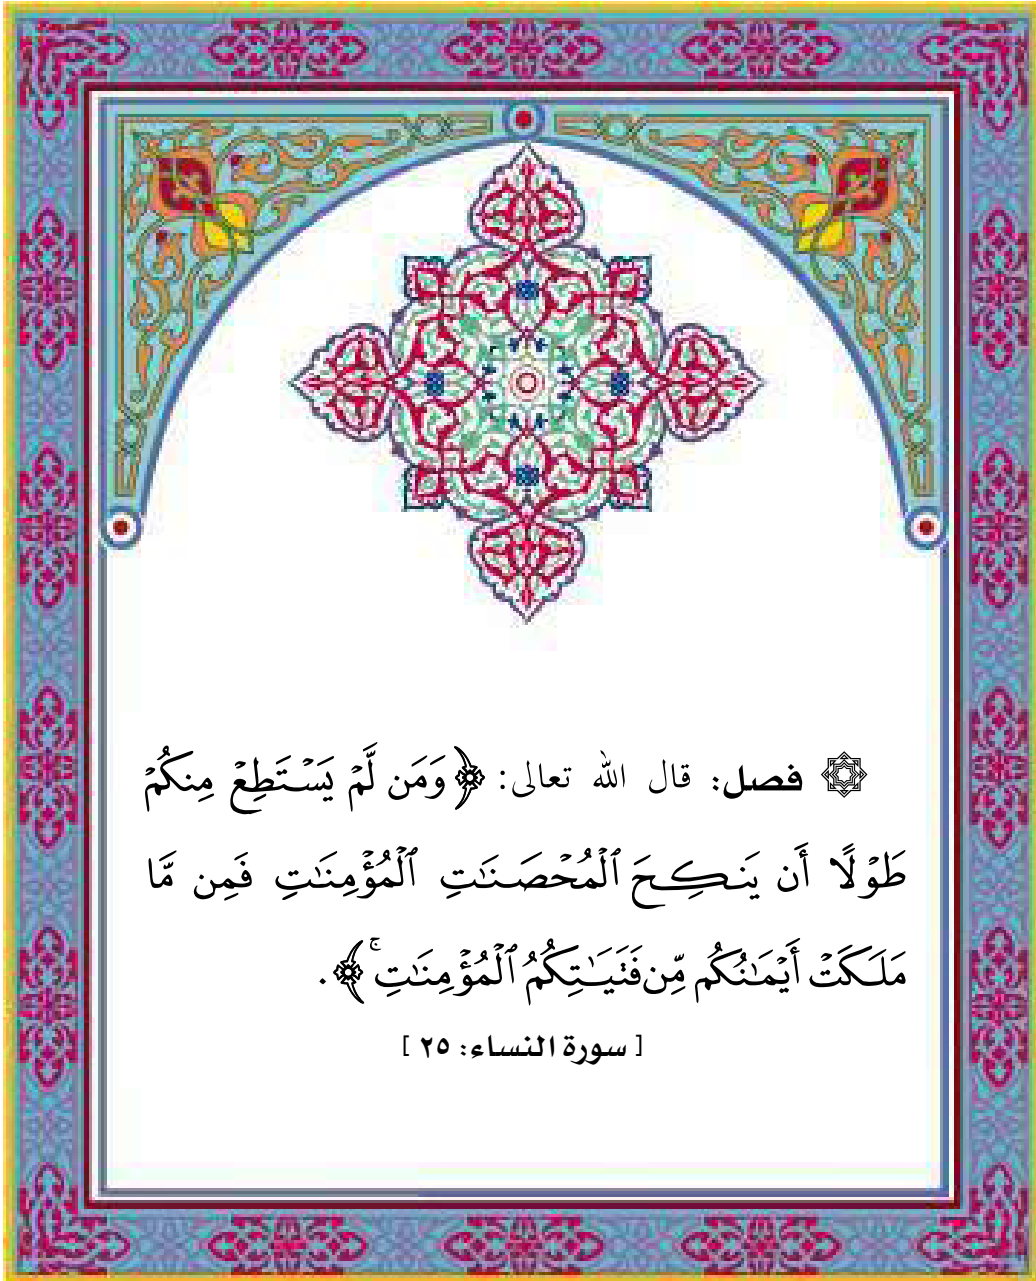 ۞ فصل: قال الله تعالى: ﴿وَمَن لَّمْ يَسْتَطِعْ مِنكُمْ
طَوْلًا أَن يَنكِحَ ٱلْمُحْصَنَٰتِ ٱلْمُؤْمِنَٰتِ فَمِن مَّا
مَلَكَتْ أَيْمَٰنُكُم مِّن فَتَيَٰتِكُمُ ٱلْمُؤْمِنَٰتِ ۚ﴾.
[ سورة النساء: ٢٥ ]